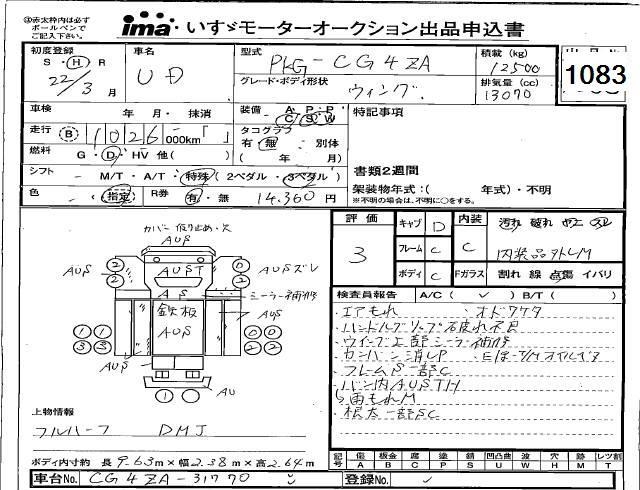 ③赤太枠内は必ず
ボールペンで
ご記入下さい。
ima いすゞモーターオークション出品申込書
初度登録 車名 型式 積載 (kg)
S・H・R UD PKG-CG4ZA 12500
22/3月 グレード・ボディ形状 排気量 (cc)
ウィング 13070
1083
車検 年 月・抹消 装備 A・P・P C S W 特記事項
走行 B 1026 000km「 」 タコグラフ
有・無 別体
燃料 G・D・HV 他( ) ( 年 月)
書類2週間
シフト M/T・A/T・特殊 (2ペダル・3ペダル) 架装物年式:( 年式)・不明
※不明の場合は、不明に○をする。
色 指定 R券 有・無 14,360円
評価 キャブ D 内装 汚れ 破れ
3 フレーム C C 内装品外しM
ボディ C Fガラス 割れ 線 点傷 イバリ
カバー 仮り止め・欠
AUS
AUS AUST AUSズレ
② ② ⓪ ②
AS シーラー補修
鉄板 AUS
AUS
① ① ③ ③ ⓪ ⓪ ② ②
AUS
AU
① ⓪
検査員報告 A/C( ✓ ) B/T( )
・エアもれ
・ウイング上部シーラー補修
・カンバン消しP
・フレームS一部C
・バン内AUSTH
・雨もれM
・根太一部SC
上物情報
フルハーフ DMJ
ボディ内寸約 長9.63m×幅2.38m×高2.64m
記号 傷 A 板金 B 腐 C 塗 P 錆 S 凹凸曲 U 波 W 穴 H 跡 M レンズ割 T
車台No. CG4ZA-31770 登録No.